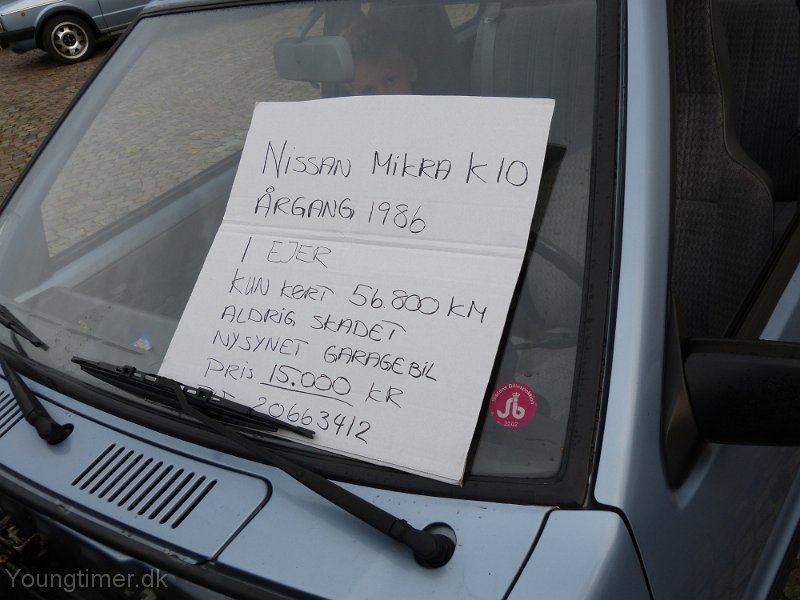 NISSAN MIKRA K10
ÅRGANG 1986
1 EJER
KUN KØRT 56.800 KM
ALDRIG SKADET
NYSYNET GARAGEBIL
PRIS 15.000 KR
20663412
Youngtimer.dk